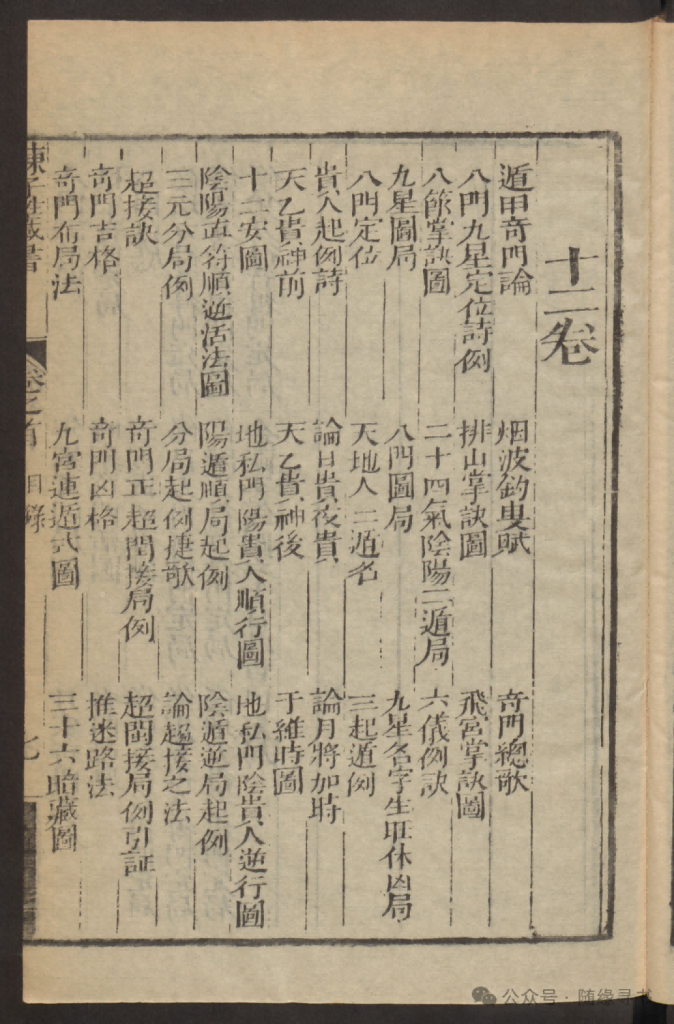 十二卷
遁甲奇門論 烟波釣叟賦 奇門總歌
八門九星定位詩例 排山掌訣圖 飛宮掌訣圖
八節掌訣圖 二十四氣陰陽二遁局 六儀例訣
九星圖局 八門圖局 九星各字生旺休凶局
八門定位 天地人三遁名 三起遁例
貴人起例詩 論日貴夜貴 論月將加時
天乙貴神前 天乙貴神後 于維時圖
十二安圖 地私門陽貴人順行圖 地私門陰貴人逆行圖
陰陽直符順逆活法圖 陽遁順局起例 陰遁逆局起例
三元分局例 分局起例捷歌 論超接之法
超接訣 奇門正超閏接局例 超閏接局例引証
奇門吉格 奇門凶格 推迷路法
奇門布局法 九宮連遁式圖 三十六暗藏圖
陳子性藏書 卷之首 目錄 七
公众号·随缘寻书